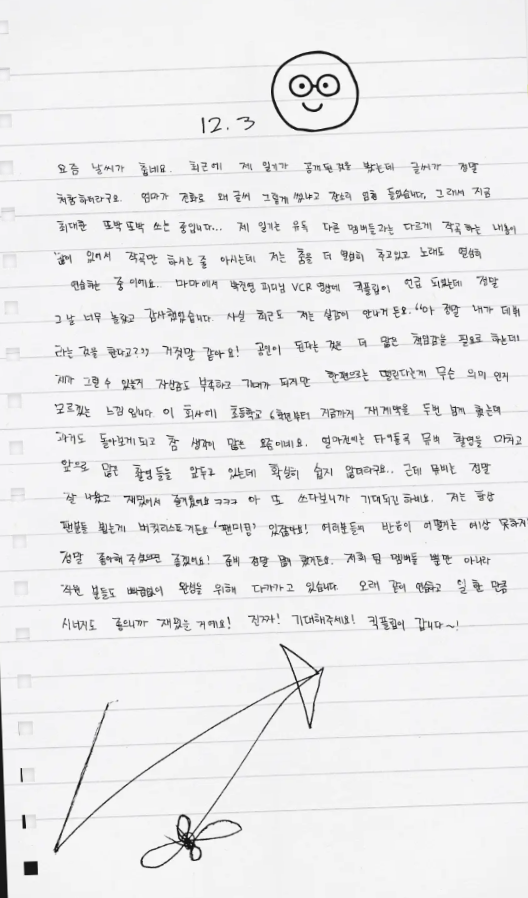 12.3
요즘 날씨가 춥네요. 최근에 제 일기가 공개된 것을 봤는데 글씨가 정말
처참하더라구요. 엄마가 전화로 왜 글씨 그렇게 썼냐고 잔소리 엄청 들었습니다, 그래서 지금
최대한 또박또박 쓰는 중입니다... 제 일기는 유독 다른 멤버들과는 다르게 작곡하는 내용이
많이 있어서 작곡만 하시는 줄 아시는데 저는 춤을 더 열심히 추고있고 노래도 열심히
연습하는 중이에요.. 마마에서 박진영 피디님 VCR 영상에 킥플립이 언급 되었는데 정말
그날 너무 놀랐고 감사했었습니다. 사실 최근도 저는 실감이 안나거든요. "아 정말 내가 데뷔
라는 것을 한다고??" 거짓말 같아요! 공인이 된다는 것은 더 많은 책임감을 필요로 하는데
제가 그럴 수 있는지 자신감도 부족하고 기대가 되지만 한편으로는 떨린다는게 무슨 의미인지
모르겠는 느낌입니다. 이 회사에 초등학교 6학년부터 지금까지 재계약을 두번 넘게 했는데
과거도 돌아보게되고 참 생각이 많은 요즘이네요. 얼마전에는 타이틀곡 뮤비 촬영을 마치고
앞으로 많은 촬영들을 앞두고 있는데 확실히 쉽지 않더라구요.. 근데 뮤비는 정말
잘 나왔고 재밌어서 즐거웠어요 ㅋㅋㅋ 아 또 쓰다보니까 기대되긴 하네요. 저는 항상
팬분들 뵙는게 버킷리스트거든요 '팬미팅' 있잖아요! 여러분들의 반응이 어떨지는 예상 못하지만
정말 좋아해 주셨으면 좋겠어요! 준비 정말 많이 했거든요. 저희 팀 멤버들 뿐만 아니라
직원 분들도 빠짐없이 완성을 위해 다가가고 있습니다. 오래 같이 연습하고 일한 만큼
시너지도 좋으니까 재밌는 거예요! 진짜! 기대해주세요! 킥플립이 갑니다~!